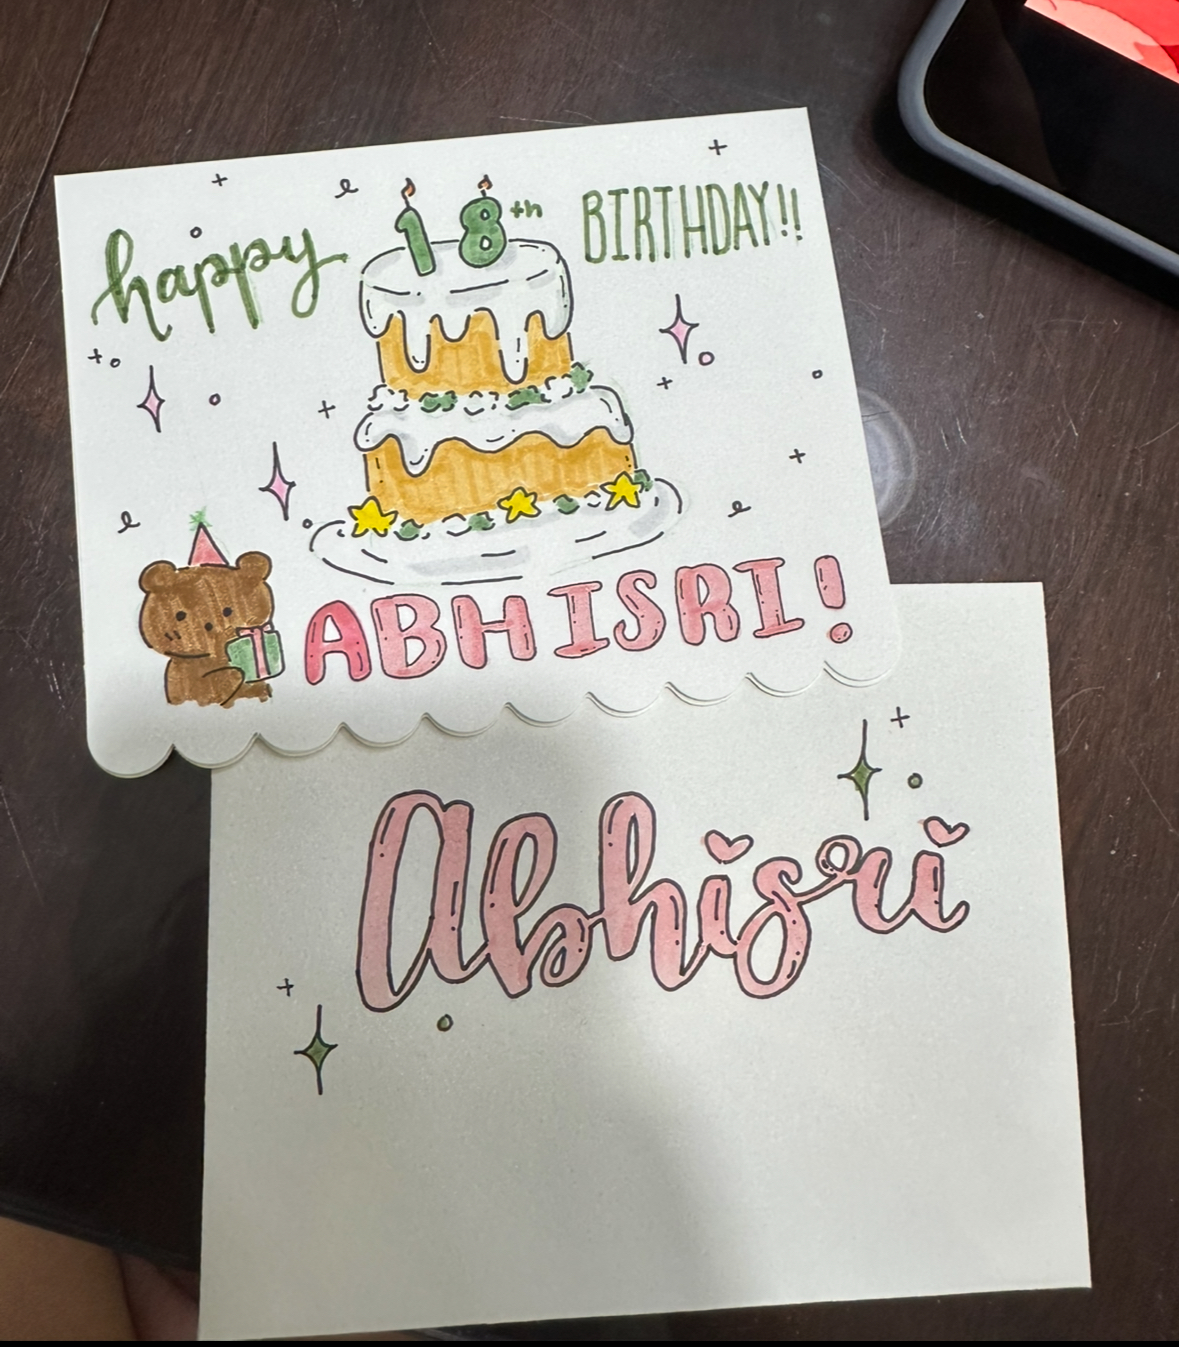 happy 18th BIRTHDAY!!
ABHISRI!
Abhisri